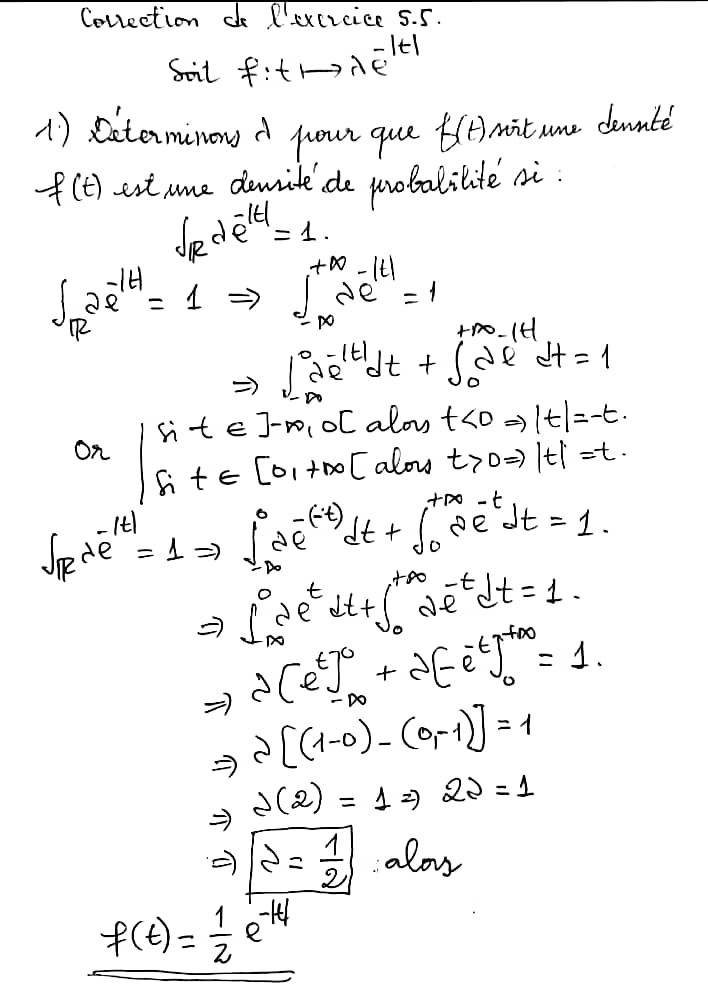 Correction de l'exercice 5.5.
Soit f: t ⟼ λe^{-|t|}
1) Déterminons λ pour que f(t) soit une densité
f(t) est une densité de probabilité si :
∫_ℝ λe^{-|t|} = 1.
∫_ℝ λe^{-|t|} = 1 ⇒ ∫_{-∞}^{+∞} λe^{-|t|} = 1
⇒ ∫_{-∞}^{0} λe^{-|t|} dt + ∫_{0}^{+∞} λe^{-|t|} dt = 1
Or | Si t ∈ ]-∞, 0[ alors t<0 ⇒ |t|=-t.
| Si t ∈ [0, +∞[ alors t>0 ⇒ |t| =t.
∫_ℝ λe^{-|t|} = 1 ⇒ ∫_{-∞}^{0} λe^{-(-t)} dt + ∫_{0}^{+∞} λe^{-t} dt = 1.
⇒ ∫_{-∞}^{0} λe^{t} dt + ∫_{0}^{+∞} λe^{-t} dt = 1.
⇒ λ[e^{t}]_{-∞}^{0} + λ[-e^{-t}]_{0}^{+∞} = 1.
⇒ λ[(1-0) - (0,-1)] = 1
⇒ λ(2) = 1 ⇒ 2λ = 1
⇒ λ = 1/2 alors
f(t) = 1/2 e^{-|t|}